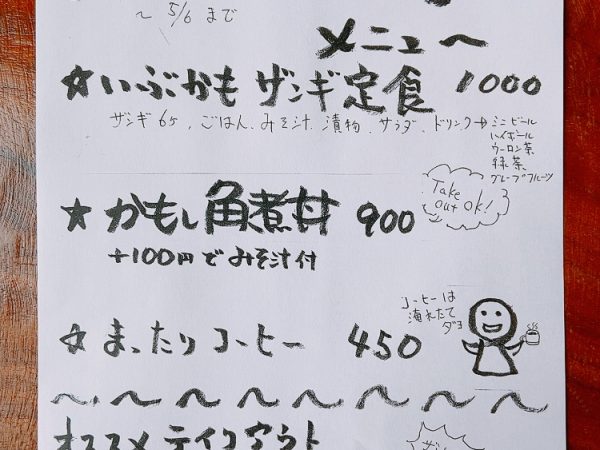 〜 5/6 まで
メニュー
☆いぶかもザンギ定食 1000
ザンギ6コ、ごはん、みそ汁、漬物、サラダ、ドリンク→ミニビール
ハイボール
ウーロン茶
緑茶、
グレープフルーツ
★かもし角煮丼 900
Take out ok!
+100円でみそ汁付
☆まったりコーヒー 450
コーヒーは
淹れたて
ダヨ
〜〜〜〜〜〜〜〜
オススメテイクアウト